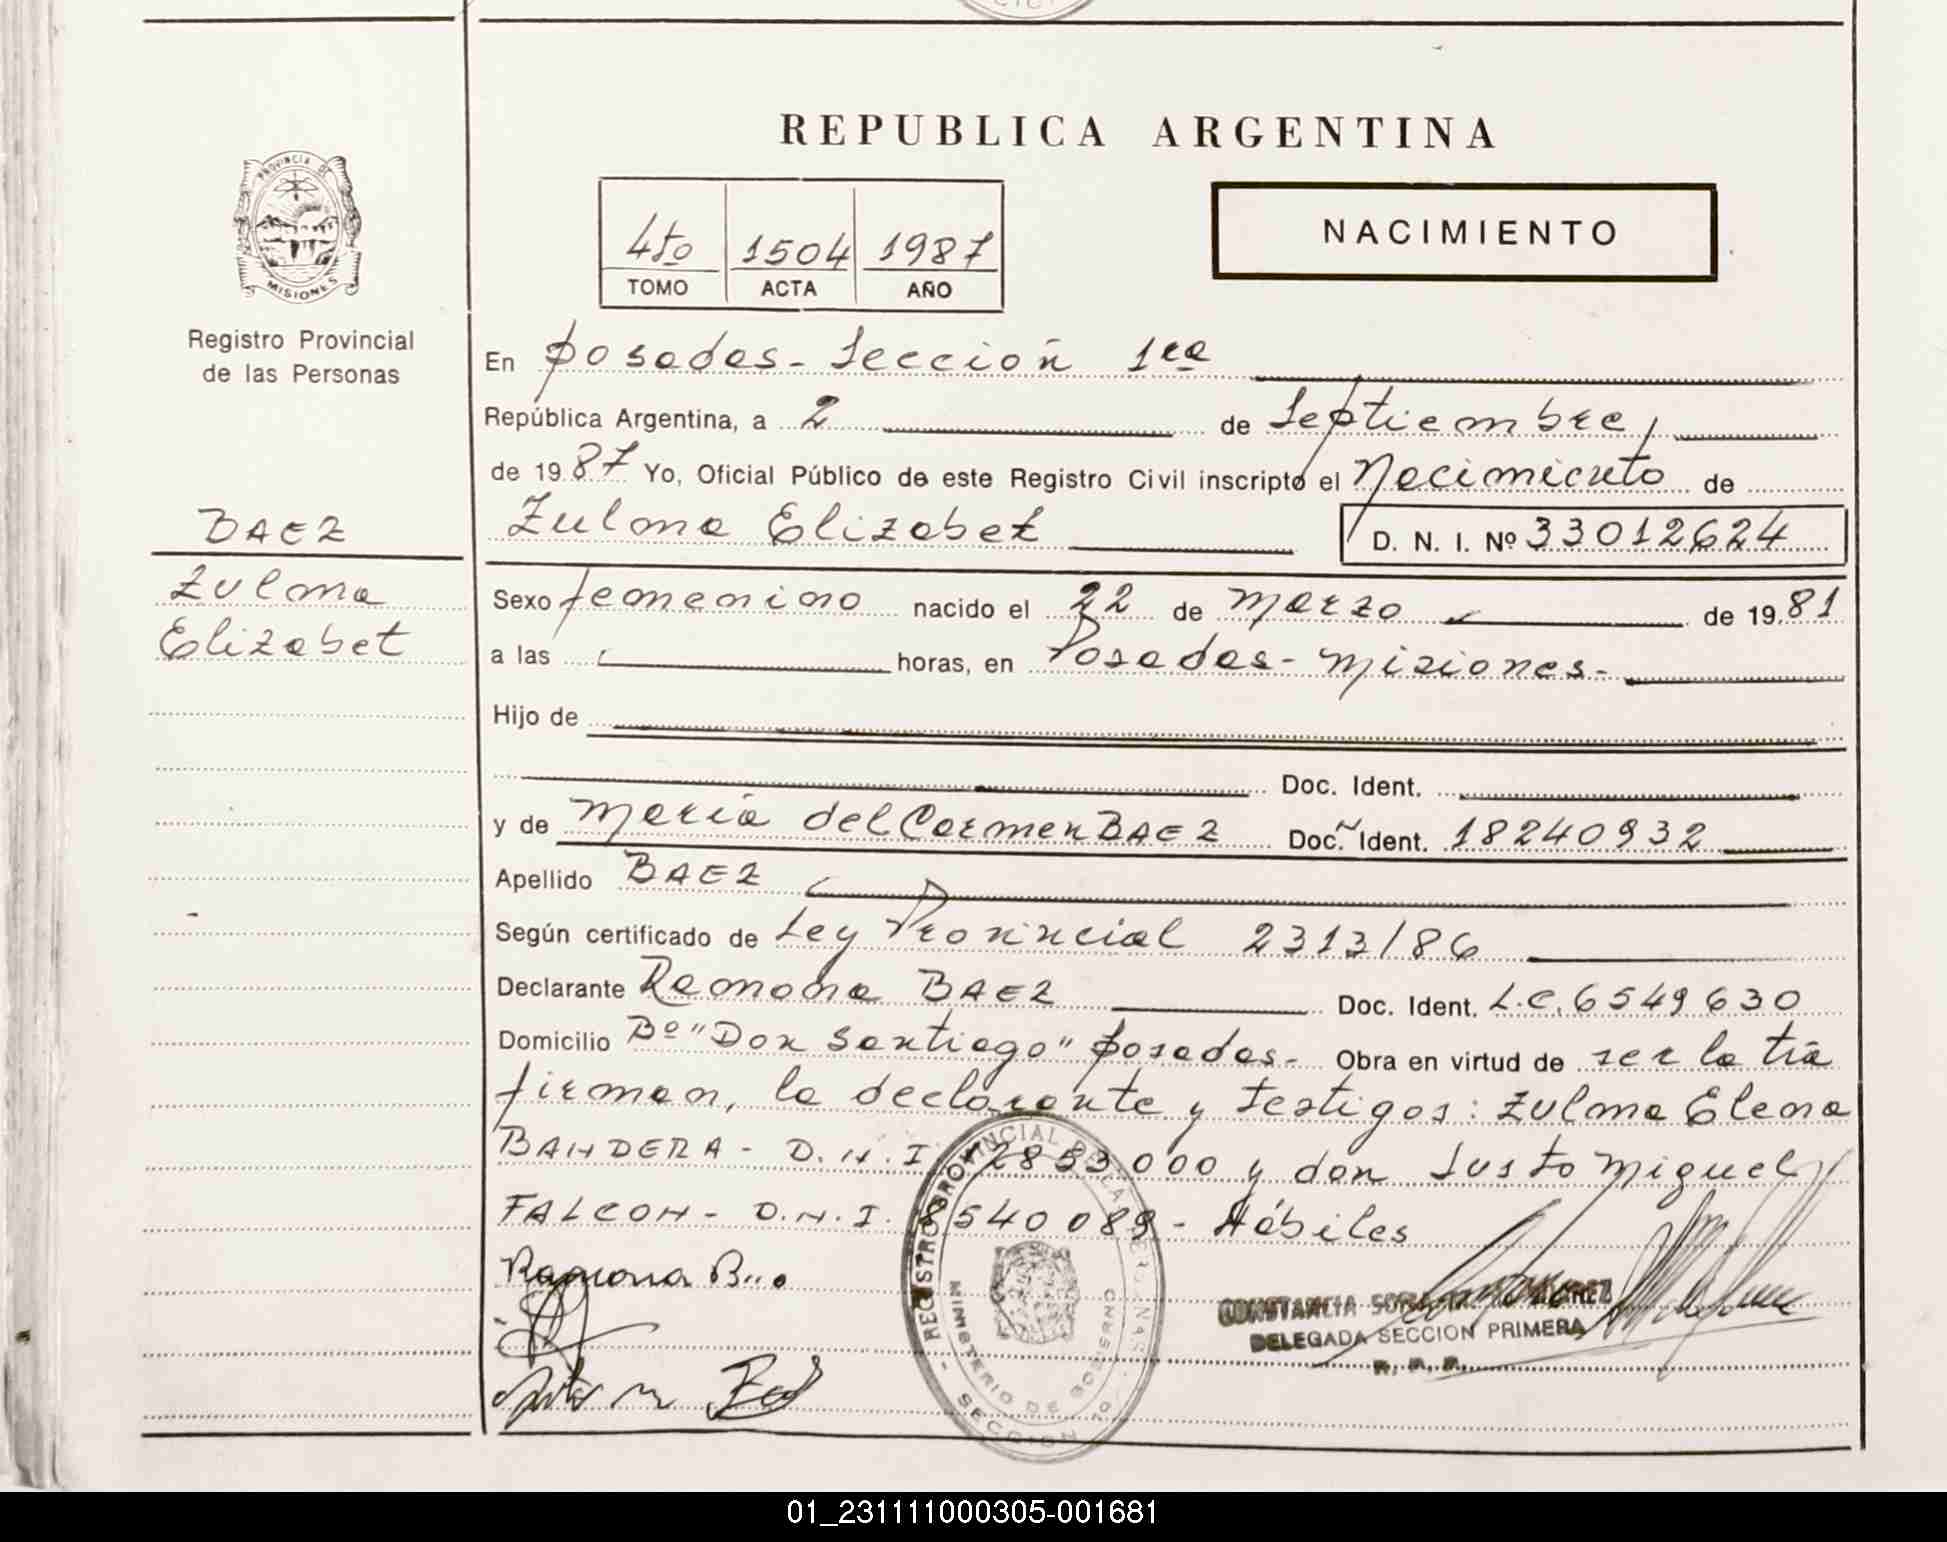 REPUBLICA ARGENTINA
PROVINCIA DE
MISIONES
Registro Provincial
de las Personas
4to 1504 1987
TOMO ACTA AÑO
NACIMIENTO
En Posadas - Sección 1ra
República Argentina, a 2 de Septiembre
de 19 87 Yo, Oficial Público de este Registro Civil inscripto el Nacimiento de
BAEZ
Zulma Elizabet D. N. I. Nº 33012624
Zulma
Elizabet
Sexo femenino nacido el 22 de Marzo de 19 81
a las horas, en Posadas - Misiones -
Hijo de
Doc. Ident.
y de María del Carmen BAEZ Doc. Ident. 18240932
Apellido BAEZ
Según certificado de Ley Provincial 2313/86
Declarante Ramona BAEZ Doc. Ident. L.C. 6549630
Domicilio Bº "Don Santiago" Posadas - Obra en virtud de ser la tía
firman, la declarante y testigos: Zulma Elena
BANDERA - D.N.I. 12853000 y don Justo Miguel
FALCON - D.N.I. 8540089 - Hábiles
Ramona
CONSTANCIA
DELEGADA SECCION PRIMERA
R. P. P.
- REGISTRO PROVINCIAL DE LAS PERSONAS -
MINISTERIO DE GOBIERNO
SECCION
01_231111000305-001681